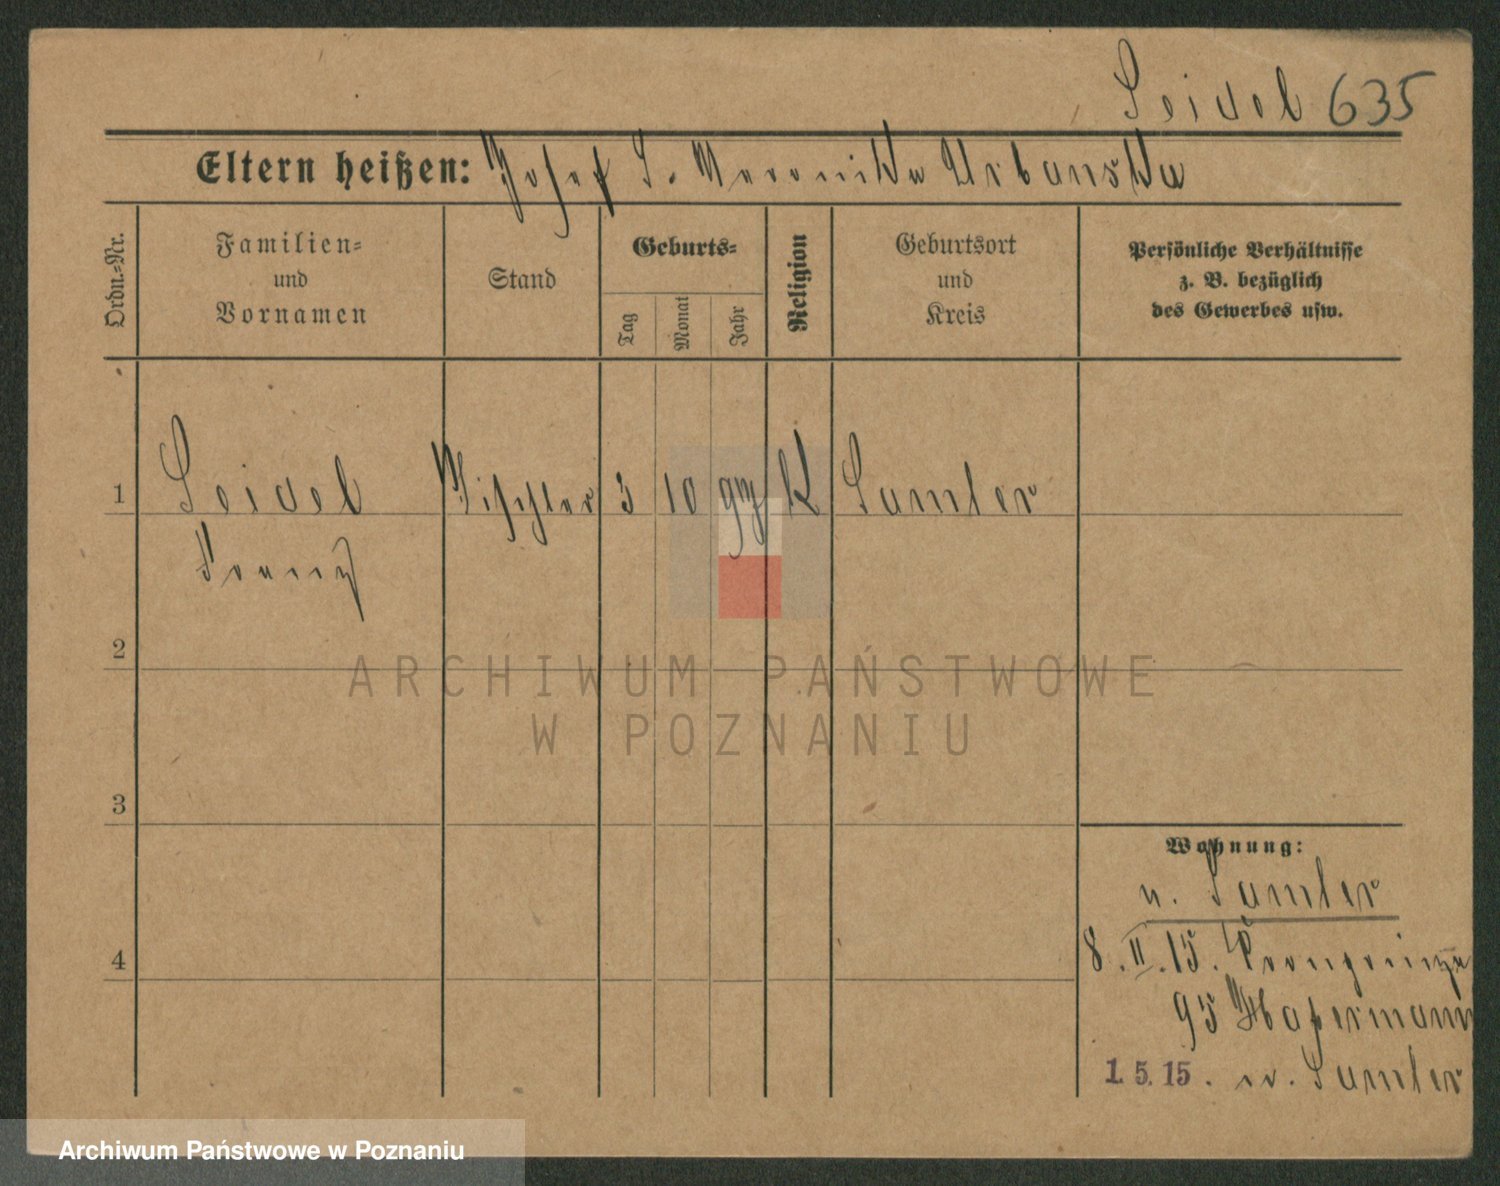 Seidel 635
Eltern heißen: Josef S. Weronika Urbanska
Ordn.=Nr.
Familien=
und
Vornamen
Stand
Geburts=
Tag
Monat
Jahr
Religion
Geburtsort
und
Kreis
Persönliche Verhältnisse
z. B. bezüglich
des Gewerbes usw.
1 Seidel Tischler 3 10 97 K Samter
Franz
2
3
4
Wohnung:
n. Samter
8. II. 15. Kronprinz
95
1. 5. 15. n. Samter
ARCHIWUM PAŃSTWOWE
W POZNANIU
Archiwum Państwowe w Poznaniu